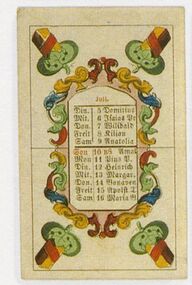 Juli.
Din. 5 Domitius
Mit. 6 Isaias Pr
Don. 7 Willibald
Freit 8 Kilian
Sam 9 Anatolia
Son 10 Amal
Mon 11 Pius P.
Din. 12 Heinrich
Mit. 13 Margar.
Don. 14 Bonaven
Freit 15 Apost. T
Sam 16 Maria